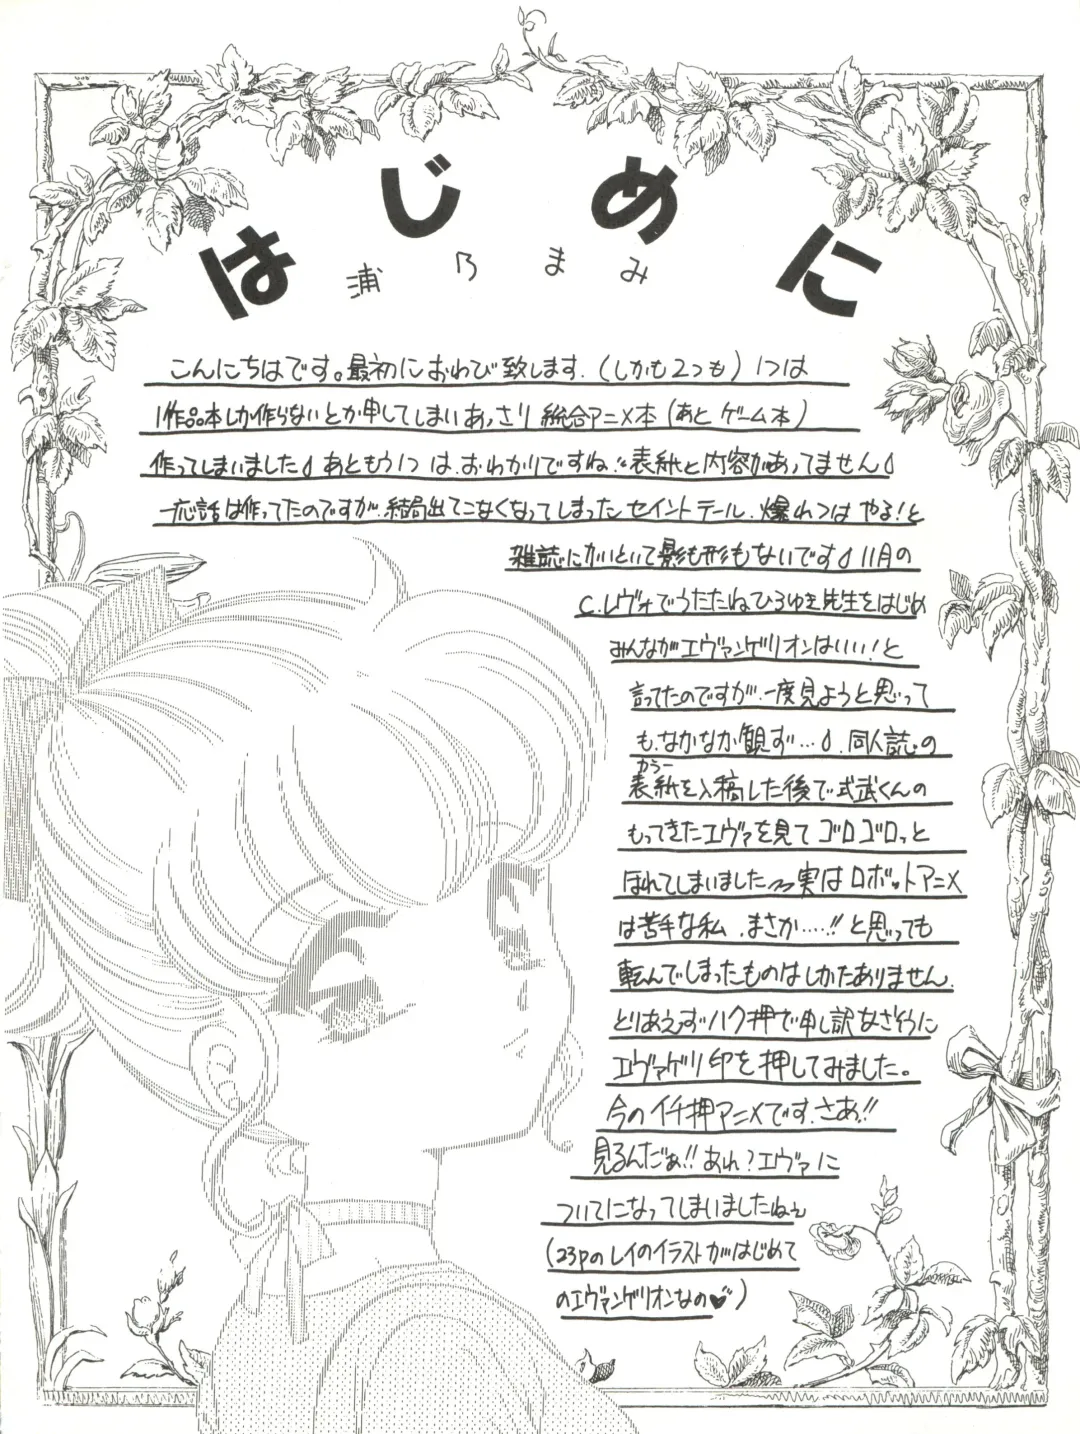 はじめに
浦乃まみ
こんにちはです。最初におわび致します.(しかも2つも)1つは
1作品本しか作らないとか申してしまいあっさり総合アニメ本(あとゲーム本)
作ってしまいました あともう1つは.おわかりですね.表紙と内容があってません
一応話は作ってたのですが.結局出てこなくなってしまったセイントテール.爆れつはやる!と
雑誌にかいといて影も形もないです 11月の
C.レヴォでうたたねひろゆき先生をはじめ
みんながエヴァンゲリオンはいい!と
言ってたのですが.一度見ようと思って
も.なかなか観ず….同人誌の
表紙(カラー)を入稿した後で式武くんの
もってきたエヴァを見てゴロゴロっと
ほれてしまいました〜実はロボットアニメ
は苦手な私.まさか……!!と思っても
転んでしまったものはしかたありません.
とりあえずハク押で申し訳なさそうに
エヴァゲリ印を押してみました。
今のイチ押アニメです.さあ!!
見るんだぁ!!あれ?エヴァに
ついてになってしまいましたねぇ
(23pのレイのイラストがはじめて
のエヴァンゲリオンなの♥)